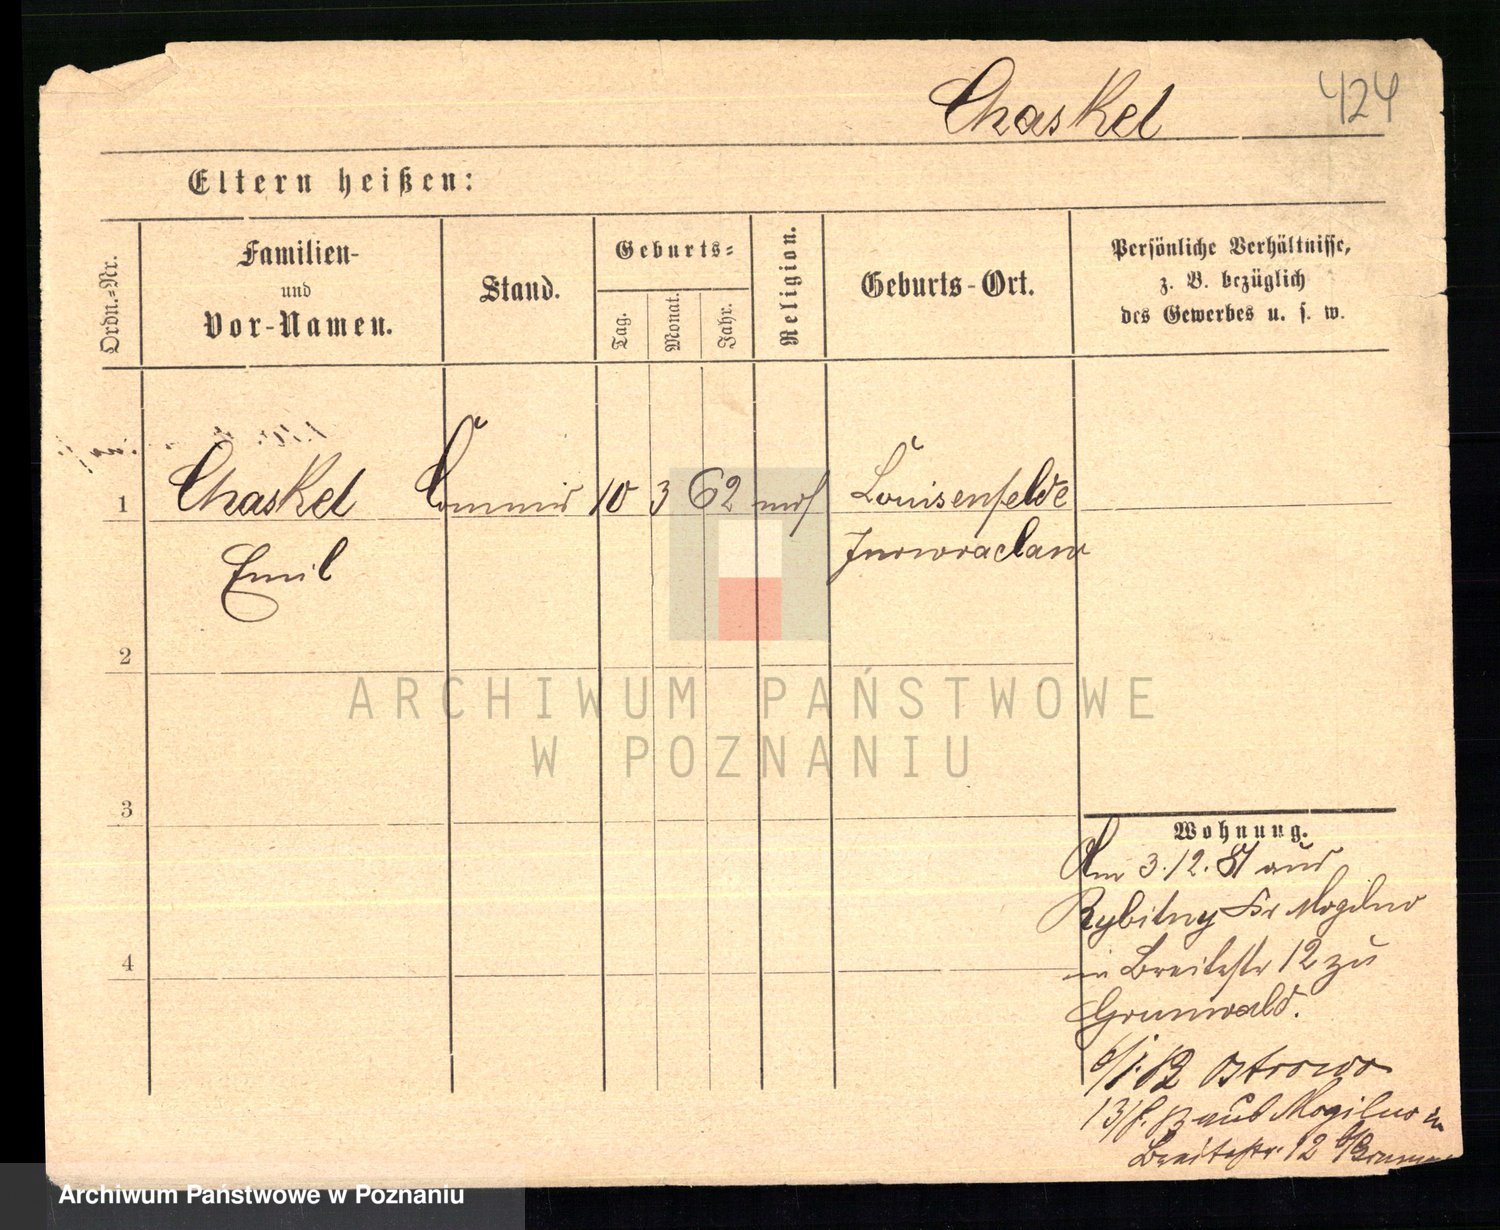 Chaskel 424
Eltern heißen:
Ordn.-Nr.
Familien-
und
Vor-Namen.
Stand.
Geburts-
Tag.
Monat.
Jahr.
Religion.
Geburts-Ort.
Persönliche Verhältnisse,
z. B. bezüglich
des Gewerbes u. s. w.
1 Chaskel Commis 10 3 62 mos Louisenfelde
Emil Inowraclaw
2
3
4
Wohnung.
Am 3.12.81 aus
Rybitwy Kr Mogilno
in Breitestr 12 zu
Grunwald.
6/1.82 Ostrowo
aus Mogilno in
Breitestr. 12 b/
ARCHIWUM PAŃSTWOWE
W POZNANIU
Archiwum Państwowe w Poznaniu